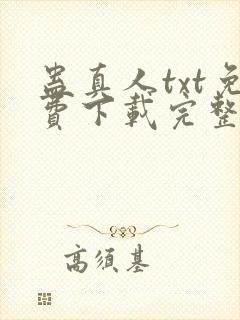 蛊真人txt免
費下載完整
高須基